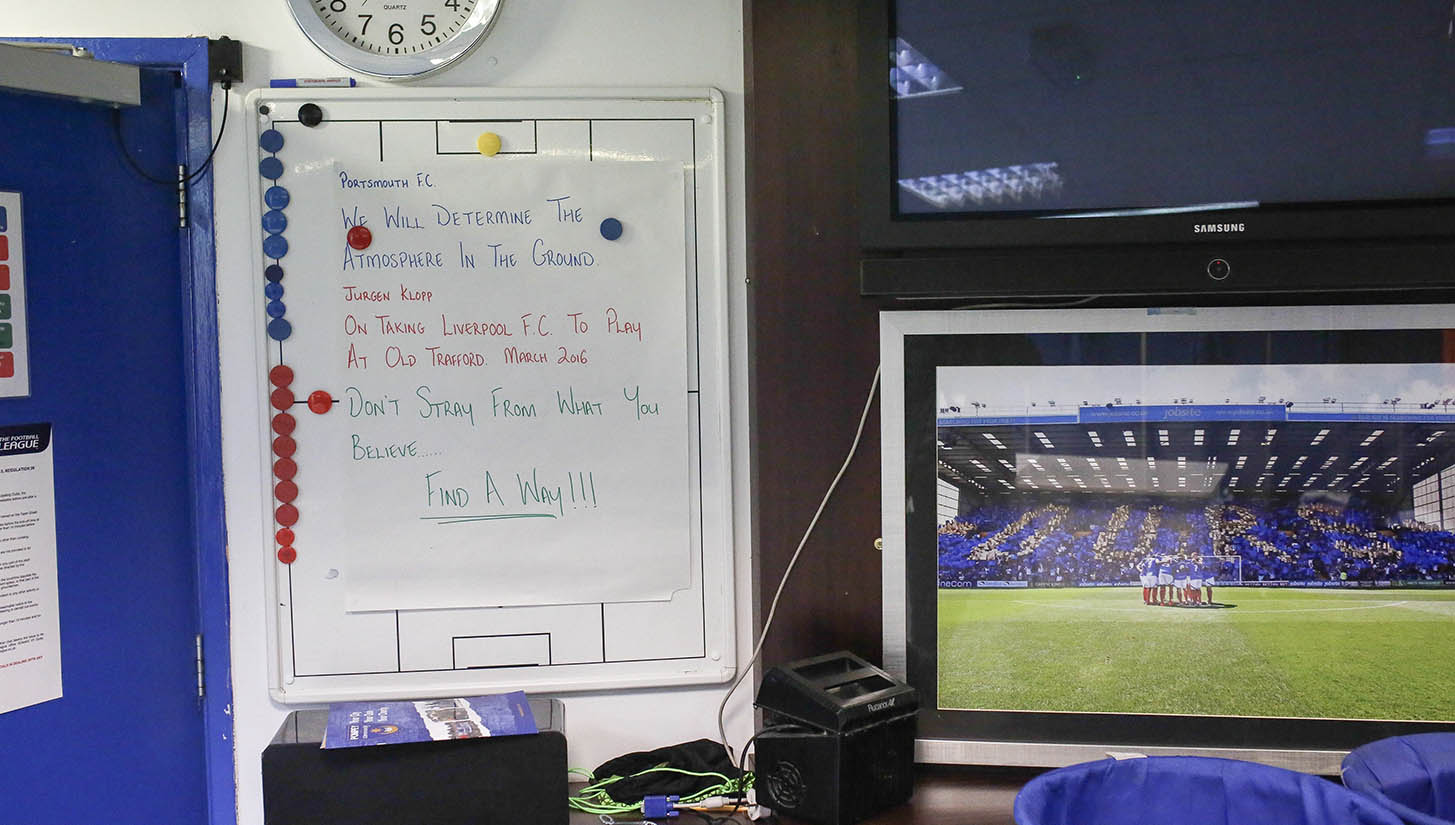 8
7
6
5
4
QUARTZ
PORTSMOUTH F.C.
WE WILL DETERMINE THE
ATMOSPHERE IN THE GROUND.
JURGEN KLOPP
ON TAKING LIVERPOOL F.C. TO PLAY
AT OLD TRAFFORD. MARCH 2016
DON'T STRAY FROM WHAT YOU
BELIEVE......
FIND A WAY!!!
THE FOOTBALL
LEAGUE
SAMSUNG
jobsite
POMPEY